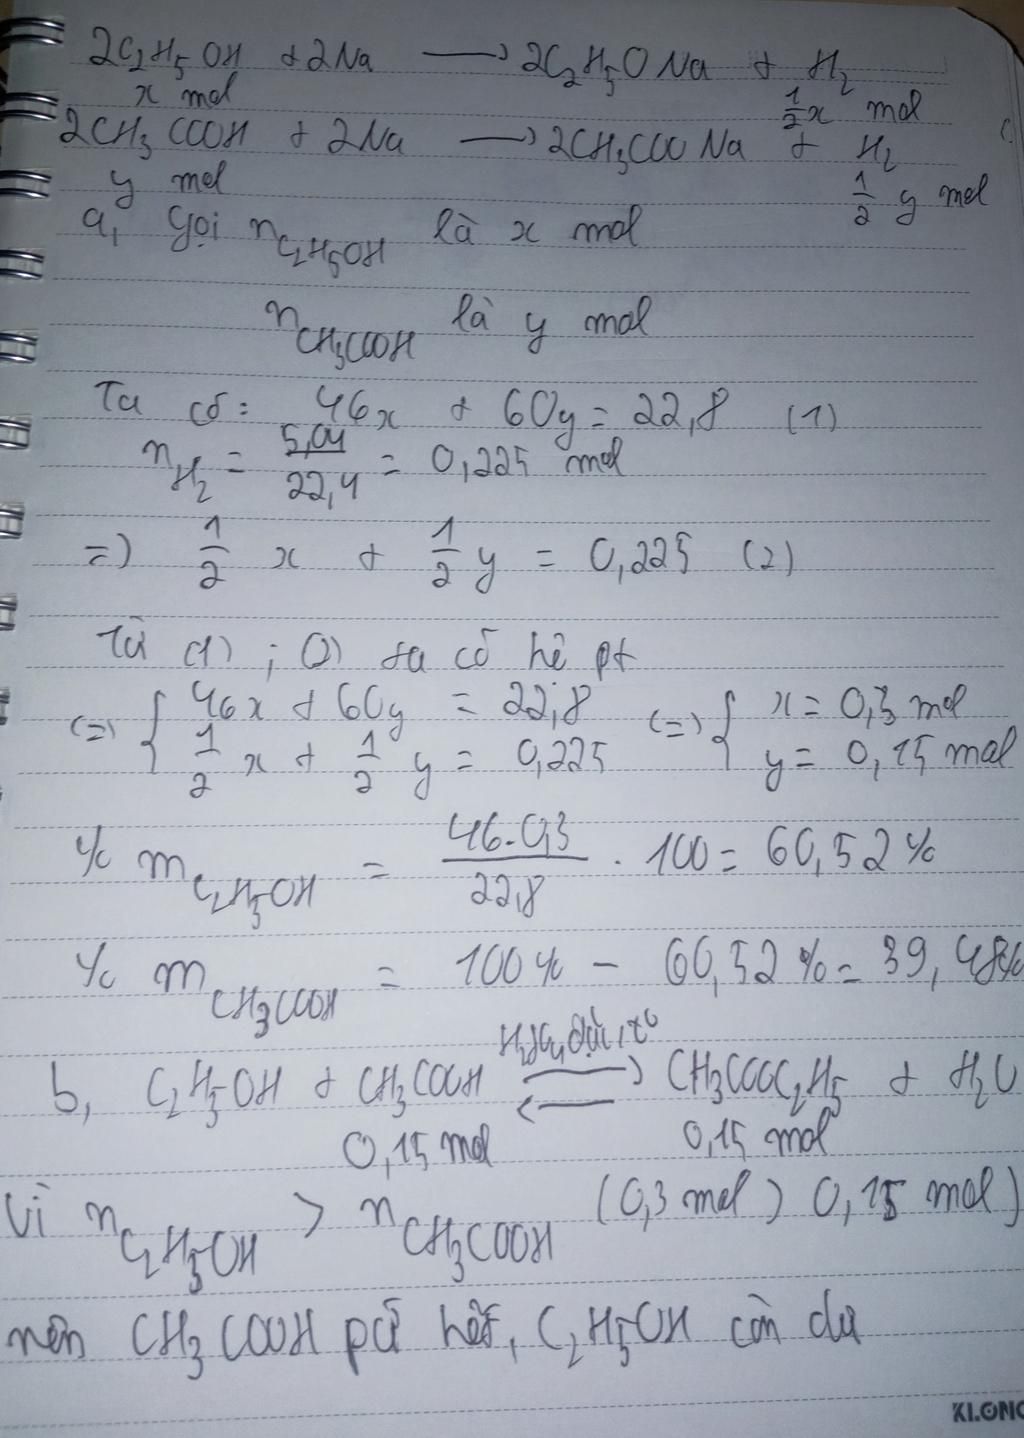 2C2H5OH + 2Na ⟶ 2C2H5ONa + H2
x mol 1/2x mol
2CH3COOH + 2Na ⟶ 2CH3COONa + H2
y mol 1/2 y mol
a, Gọi nC2H5OH là x mol
nCH3COOH là y mol
Ta có: 46x + 60y = 22,8 (1)
nH2 = 5,04/22,4 = 0,225 mol
=) 1/2 x + 1/2 y = 0,225 (2)
Từ (1) ; (2) ta có hê pt
(=) { 46x + 60y = 22,8 (=) { x = 0,3 mol
1/2 x + 1/2 y = 0,225 y = 0,15 mol
% mC2H5OH = 46.0,3/22,8 . 100 = 60,52%
% mCH3COOH = 100% - 60,52% = 39,48%
H2SO4 đặc, t°
b, C2H5OH + CH3COOH ⇌ CH3COOC2H5 + H2O
0,15 mol 0,15 mol
Vì nC2H5OH > nCH3COOH (0,3 mol > 0,15 mol)
nên CH3COOH pứ hết, C2H5OH còn dư
KLONG